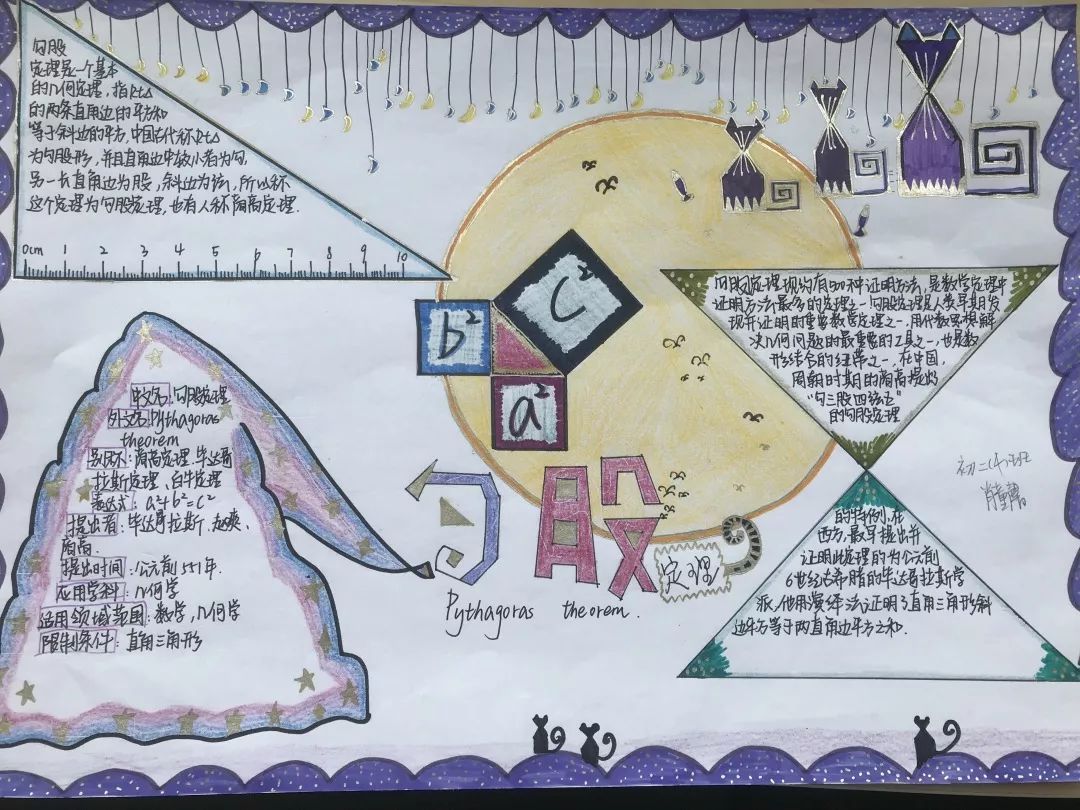 勾股
定理是一个基本
的几何定理，指Rt△
的两条直角边的平方和
等于斜边的平方，中国古代称Rt△
为勾股形，并且直角边中较小者为勾，
另一长直角边为股，斜边为弦，所以称
这个定理为勾股定理，也有人称商高定理.
0cm 1 2 3 4 5 6 7 8 9 10
b²
c²
a²
勾股定理现约有500种证明方法，是数学定理中
证明方法最多的定理之一勾股定理是人类早期发
现并证明的重要数学定理之一，用代数思想解
决几何问题的最重要的工具之一，也是数
形结合的纽带之一，在中国，
周朝时期的商高提出
“勾三股四弦五”
的勾股定理
的特例，在
西方，最早提出并
证明此定理的为公元前
6世纪古希腊的毕达哥拉斯学
派，他用演绎法证明了直角三角形斜
边平方等于两直角边平方之和.
中文名：勾股定理
外文名：Pythagoras
theorem
别称：商高定理、毕达哥
拉斯定理、百牛定理
表达式：a²+b²=c²
提出者：毕达哥拉斯、赵爽、
商高.
提出时间：公元前551年.
应用学科：几何学
适用领域范围：数学，几何学
限制条件：直角三角形
勾股
定理
Pythagoras theorem.
初二(4)班